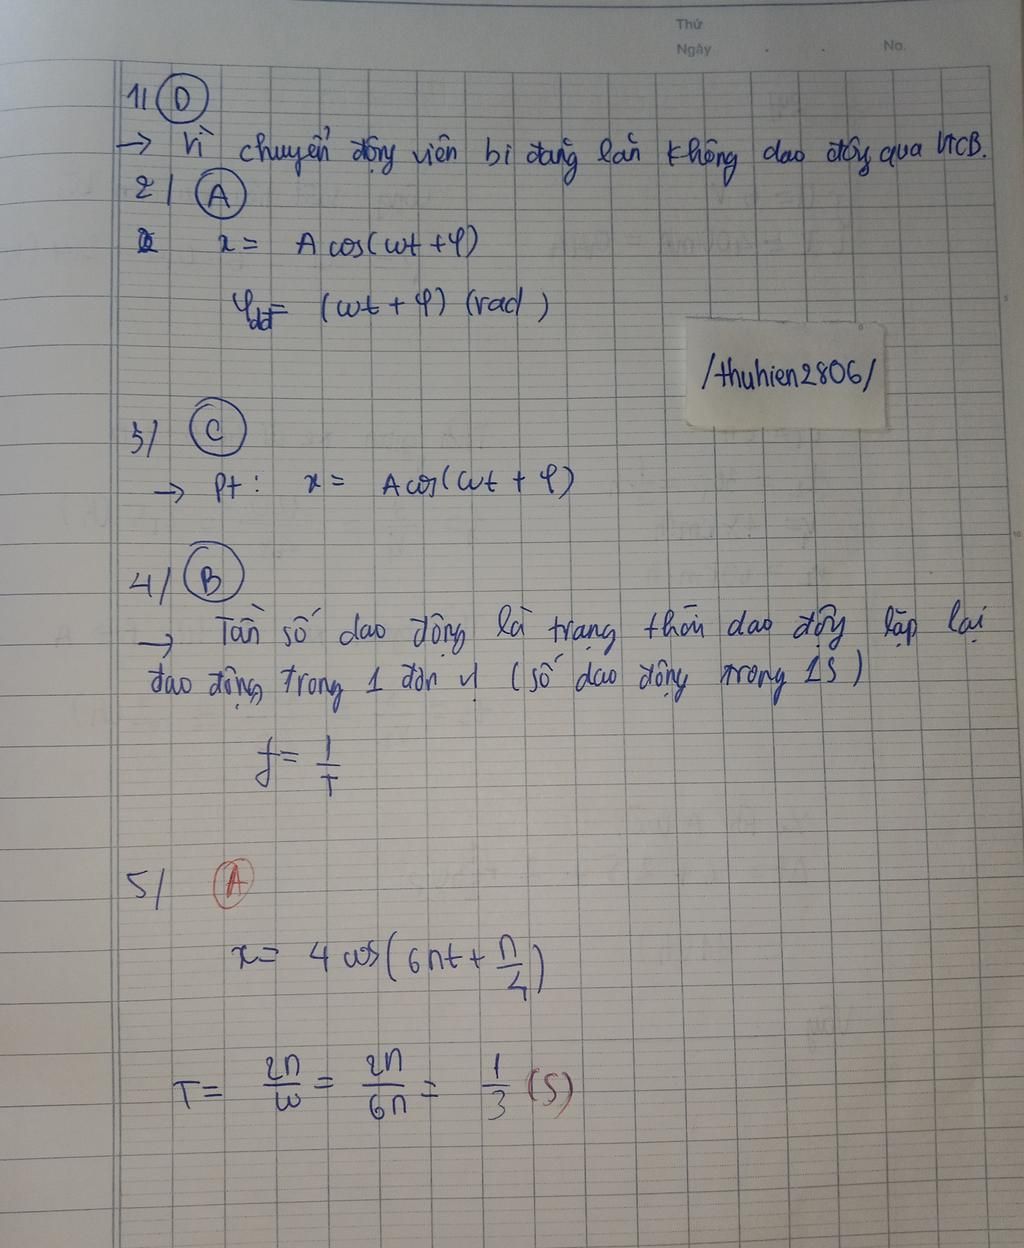 Thứ
Ngày . . No.
1/ D
→ Vì chuyển động viên bi đang lăn không dao động qua VTCB.
2/ A
x = A cos(ωt + φ)
φdđ = (ωt + φ) (rad)
/thuhien2806/
3/ C
→ Pt: x = A cos(ωt + φ)
4/ B
→ Tần số dao động là trạng thái dao động lặp lại
dao động trong 1 đơn vị (số dao động trong 1S)
f = 1/T
5/ A
x = 4 cos(6πt + π/4)
T = 2π/ω = 2π/6π = 1/3 (S)